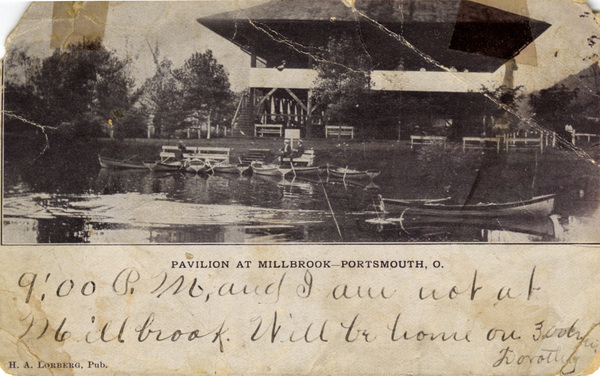 PAVILION AT MILLBROOK—PORTSMOUTH, O.
9:00 P. M, and I am not at
Millbrook. Will be home on
Dorothy
H. A. LORBERG, Pub.